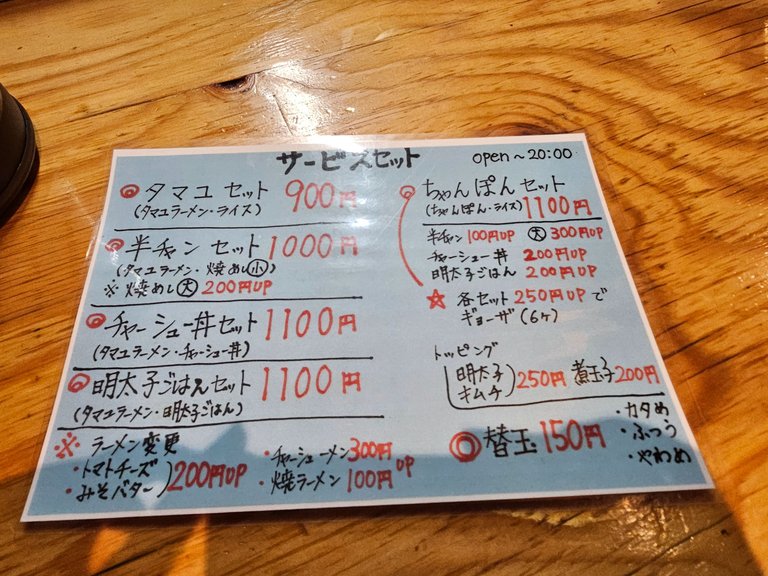 サービスセット
open～20:00
◎タマユセット 900円
(タマユラーメン・ライス)
◎半チャンセット 1000円
(タマユラーメン・焼めし小)
※焼めし大 200円UP
◎チャーシュー丼セット 1100円
(タマユラーメン・チャーシュー丼)
◎明太子ごはんセット 1100円
(タマユラーメン・明太子ごはん)
※ラーメン変更
・トマトチーズ
・みそバター
200円UP
・チャーシューメン300円
・焼ラーメン 100円
UP
◎ちゃんぽんセット
(ちゃんぽん・ライス) 1100円
半チャン 100円UP 大 300円UP
チャーシュー丼 200円UP
明太子ごはん 200円UP
☆各セット250円UPで
ギョーザ(6ヶ)
トッピング
明太子
キムチ
250円 煮玉子200円
◎替玉 150円
・カタめ
・ふつう
・やわめ